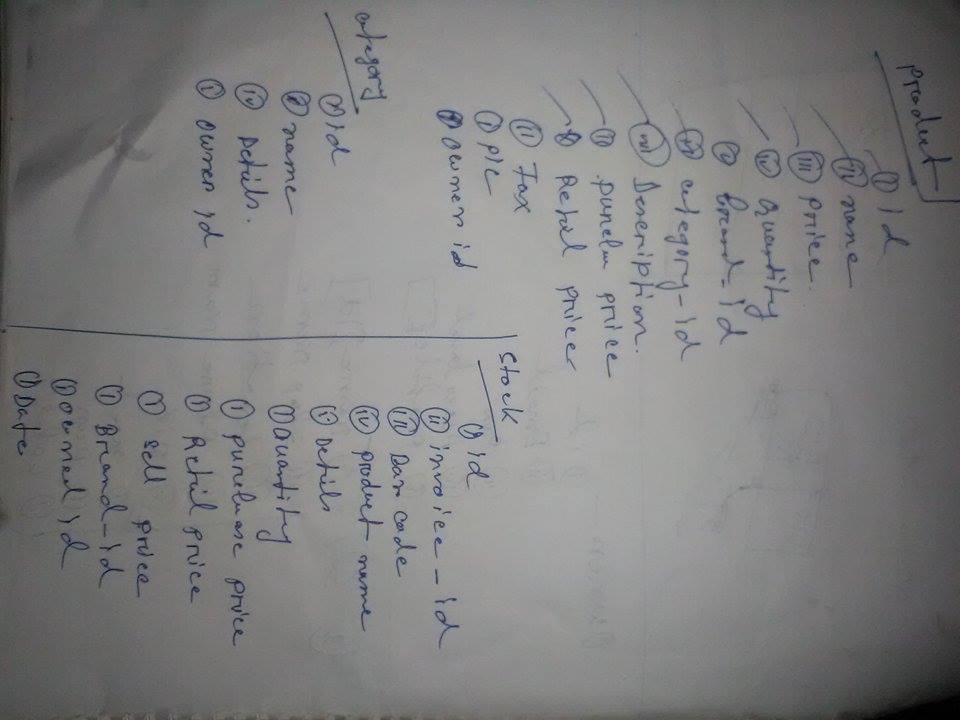 product
(i) id
(ii) name
(iii) price.
(iv) quantity
(v) brand-id
(vi) category-id
(vii) Description.
(i) price
Retail price
(ii) Tax
(i) pic
owner id
category
(i) id
name
(iv) Details.
(i) owner id
Stock
(i) id
(ii) invoice-id
(iii) Bar code
(iv) product name
(i) Details
(i) Quantity
(i) purchase price
(i) Retail price
(i) sell price
(i) Brand-id
(i) owned id
(i) Date